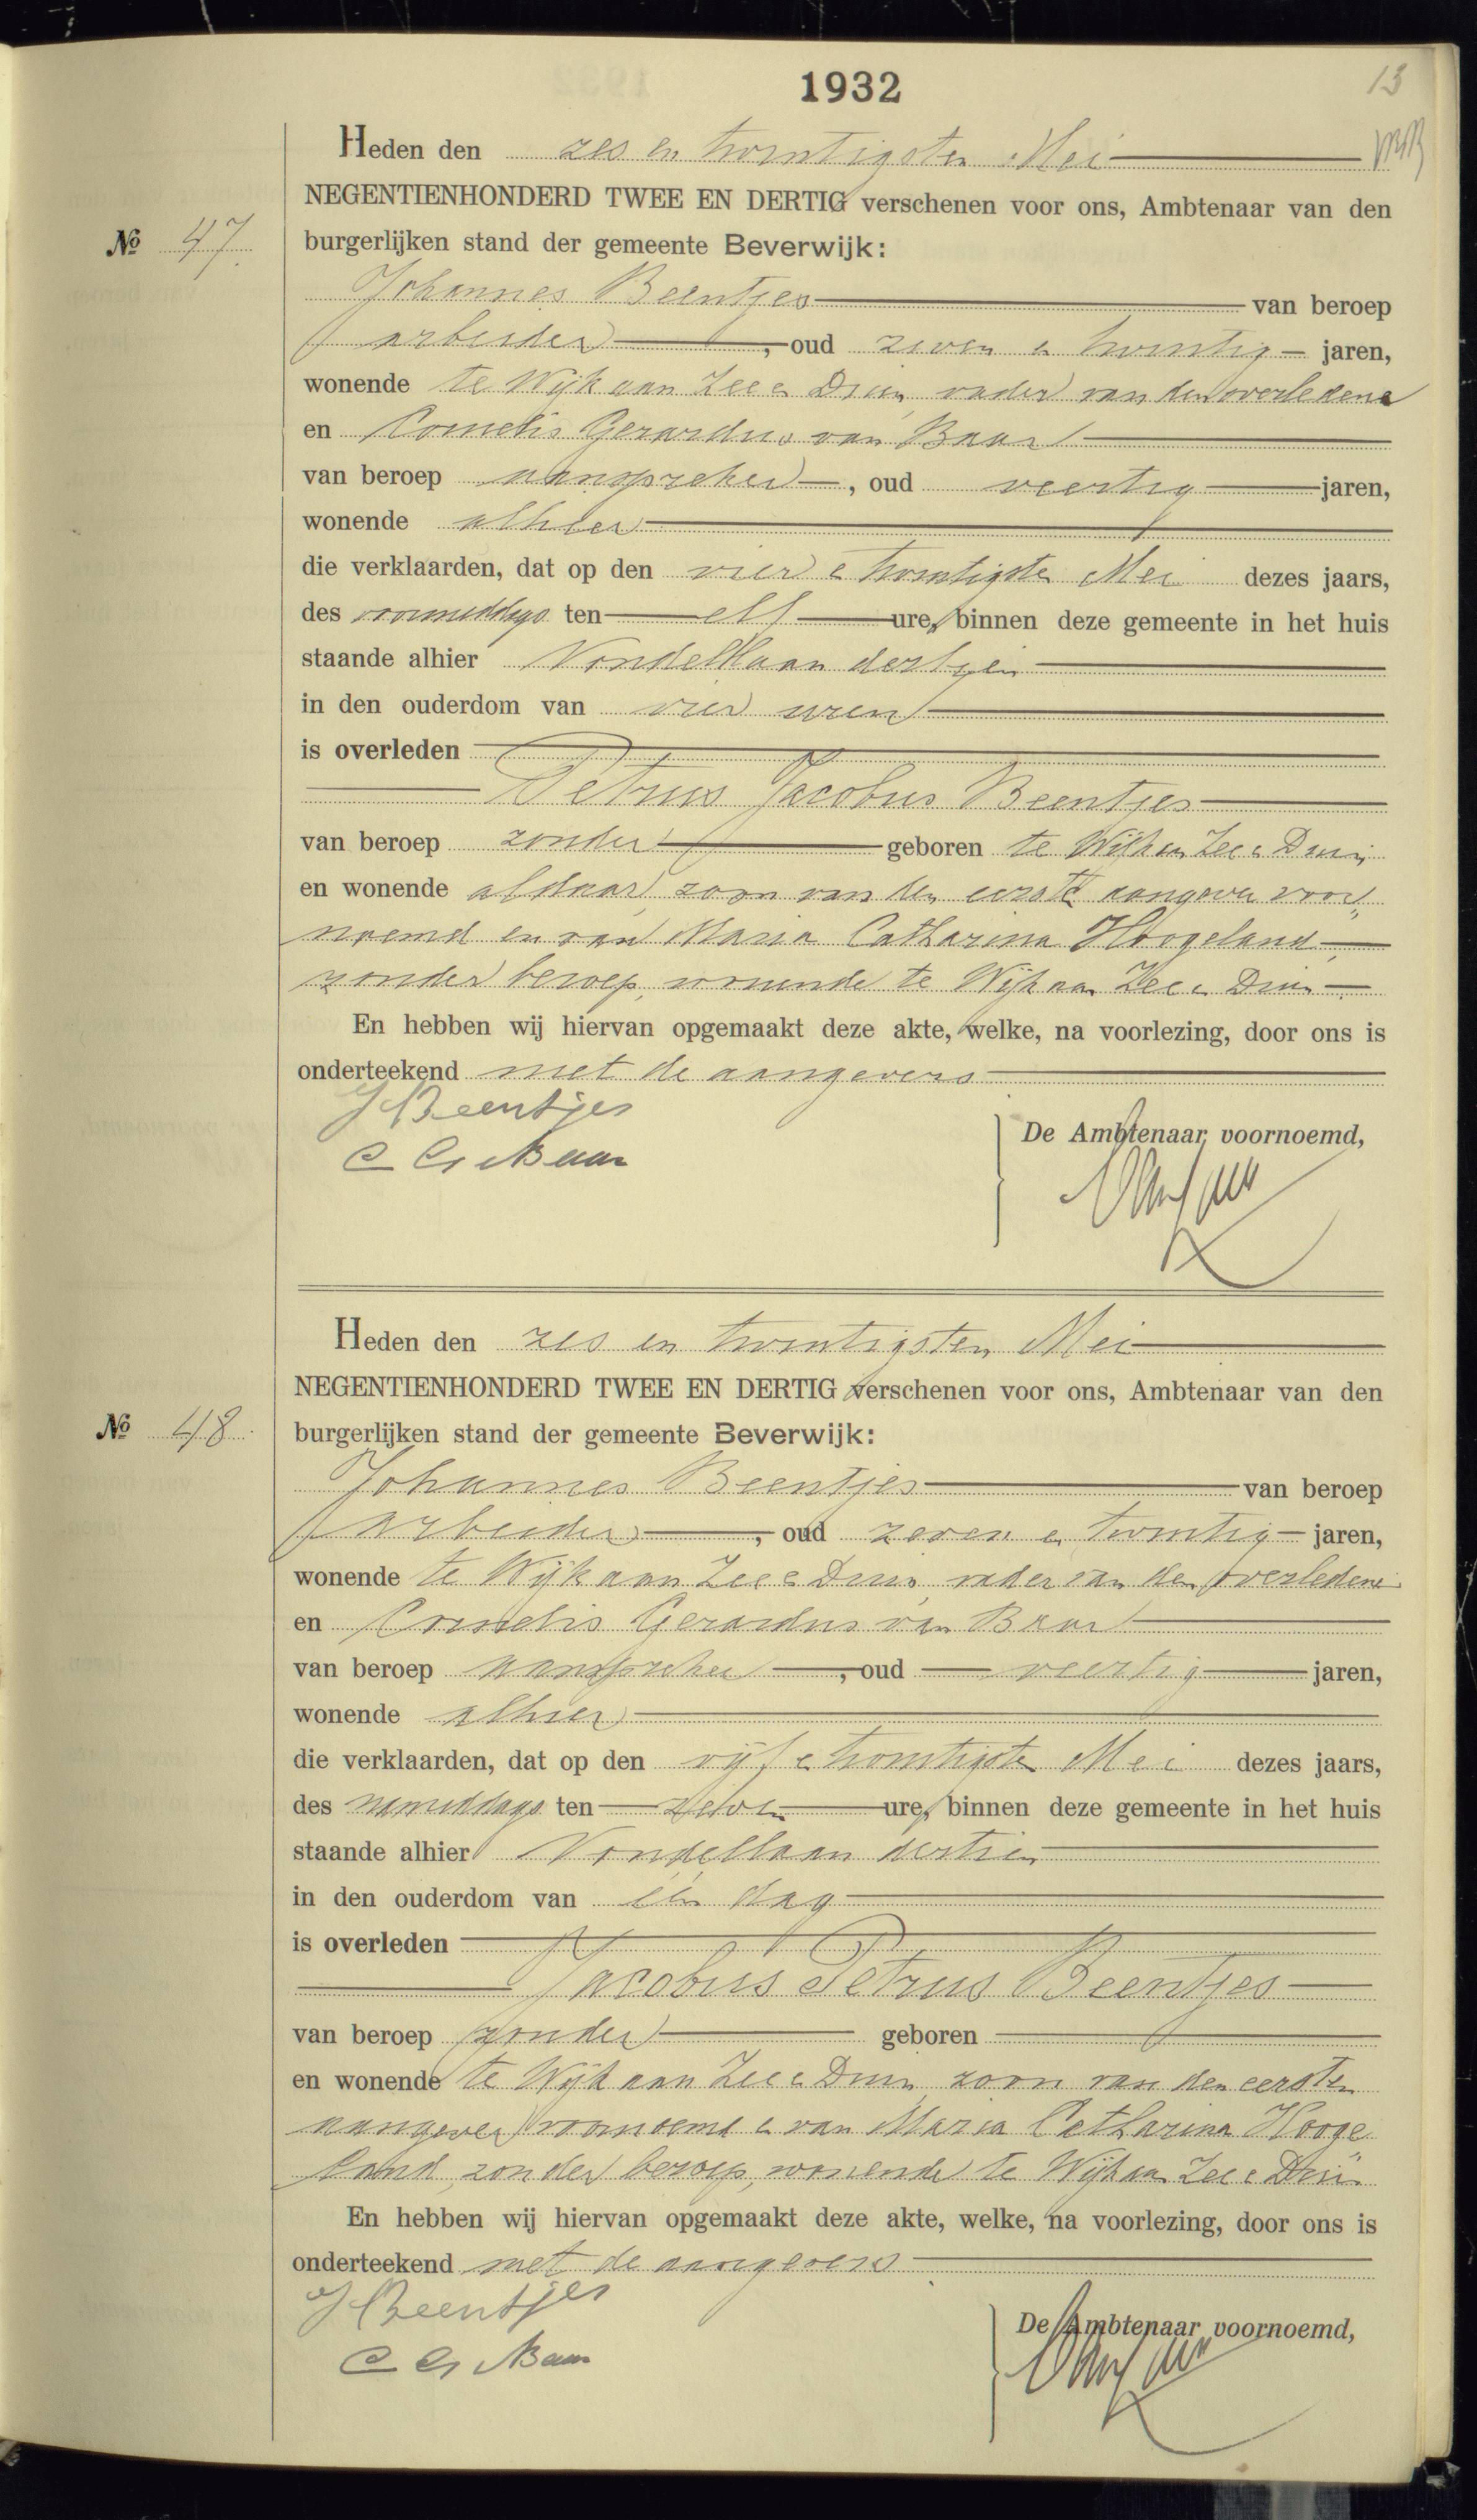 1932
13
Heden den zes en twintigsten Mei
NEGENTIENHONDERD TWEE EN DERTIG verschenen voor ons, Ambtenaar van den
№ 47. burgerlijken stand der gemeente Beverwijk:
Johannes Beentjes van beroep
arbeider, oud zeven en twintig jaren,
wonende te Wijk aan Zee en Duin, vader van den overledene
en Cornelis Gerardus van Baar
van beroep aanspreker, oud veertig jaren,
wonende alhier
die verklaarden, dat op den vier en twintigsten Mei dezes jaars,
des voormiddags ten elf ure, binnen deze gemeente in het huis
staande alhier Vondellaan dertien
in den ouderdom van vier uren
is overleden
Petrus Jacobus Beentjes
van beroep zonder geboren te Wijk aan Zee en Duin
en wonende aldaar, zoon van den eersten aangever voor„
noemd en van Maria Catharina Hoogeland
zonder beroep, wonende te Wijk aan Zee en Duin
En hebben wij hiervan opgemaakt deze akte, welke, na voorlezing, door ons is
onderteekend met de aangevers
J Beentjes
C G v Baar
De Ambtenaar voornoemd,
Heden den zes en twintigsten Mei
NEGENTIENHONDERD TWEE EN DERTIG verschenen voor ons, Ambtenaar van den
№ 48. burgerlijken stand der gemeente Beverwijk:
Johannes Beentjes van beroep
arbeider, oud zeven en twintig jaren,
wonende te Wijk aan Zee en Duin, vader van den overledene
en Cornelis Gerardus van Baar
van beroep aanspreker, oud veertig jaren,
wonende alhier
die verklaarden, dat op den vijf en twintigsten Mei dezes jaars,
des namiddags ten zeven ure, binnen deze gemeente in het huis
staande alhier Vondellaan dertien
in den ouderdom van één dag
is overleden
Jacobus Petrus Beentjes
van beroep zonder geboren
en wonende te Wijk aan Zee en Duin, zoon van den eersten
aangever voornoemd en van Maria Catharina Hooge
land, zonder beroep, wonende te Wijk aan Zee en Duin
En hebben wij hiervan opgemaakt deze akte, welke, na voorlezing, door ons is
onderteekend met de aangevers
J Beentjes
C G v Baar
De Ambtenaar voornoemd,